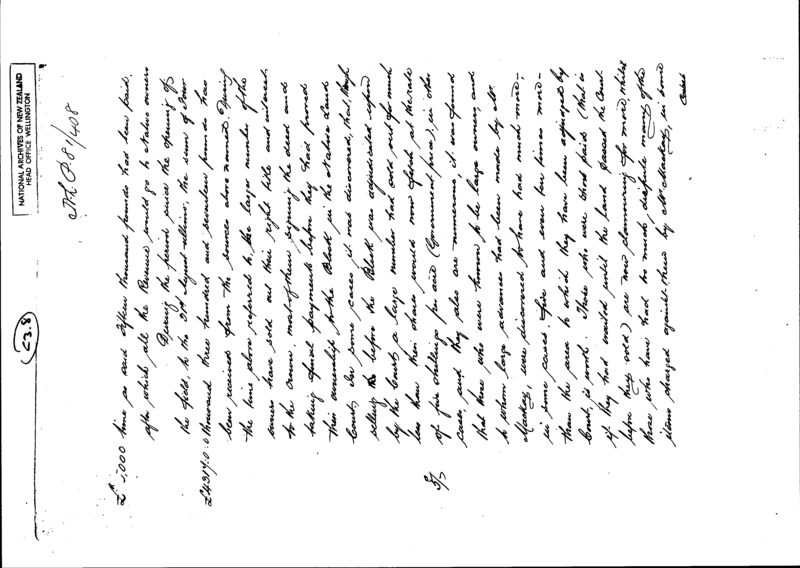 NATIONAL ARCHIVES OF NEW ZEALAND
HEAD OFFICE WELLINGTON
81/408
C3.8
time as said fifteen thousand pounds had been paid.
after which all the Revenue would go to Native owners
During the period since the opening of
the field, to the 31st August ultimo, the sum of Four
£4317.0.0 thousand three hundred and seventeen pounds has
been received from the sources above named. During
the time above referred to, the larger number of the
owners have sold out their right title and interest
to the Crown, most of them signing the deed and
taking final payments before they had proved
their ownership to the Block in the Native Land
Court. In some cases it was discovered, that, though
selling before the Block was adjudicated upon
by the Court, a large number had sold out for much
less than their shares would now fetch at the rate
5/- of five shillings per acre (Government price), in other
cases, and they also are numerous, it was found
that those who were known to be large owners, and
to whom large advances had been made by Mr.
Mackay, were discovered to have had much more,
in some cases five and even ten times more -
than the area to which they have been adjudged by
Court, is worth. Those who were least paid (that is
if they had waited until the land passed the Court
before they sold) are now clamouring for more, whilst
those who have had too much dispute many of the
items charged against them by Mr. Mackay, in some
Cases